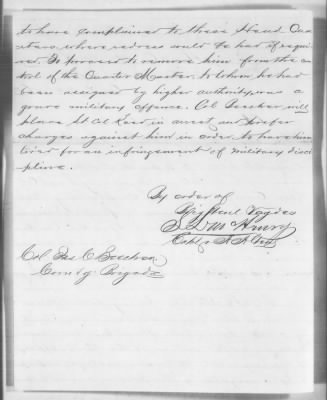 to have complained to these Head Qua
rters, where redress would be had if requi
red. To proceed to remove him from the con
trol of the Quarter Master to whom he had
been assigned by higher authority, was a
grave military offence. Col Beecher will
place Lt Col in arrest and prefer
charges against him in order to have him
tried for an infringement of military disci
pline.
By order of
Brig Genl Vogdes
McHenry
Capt & A.A.
Col Jas C Beecher
Comdg Brigade